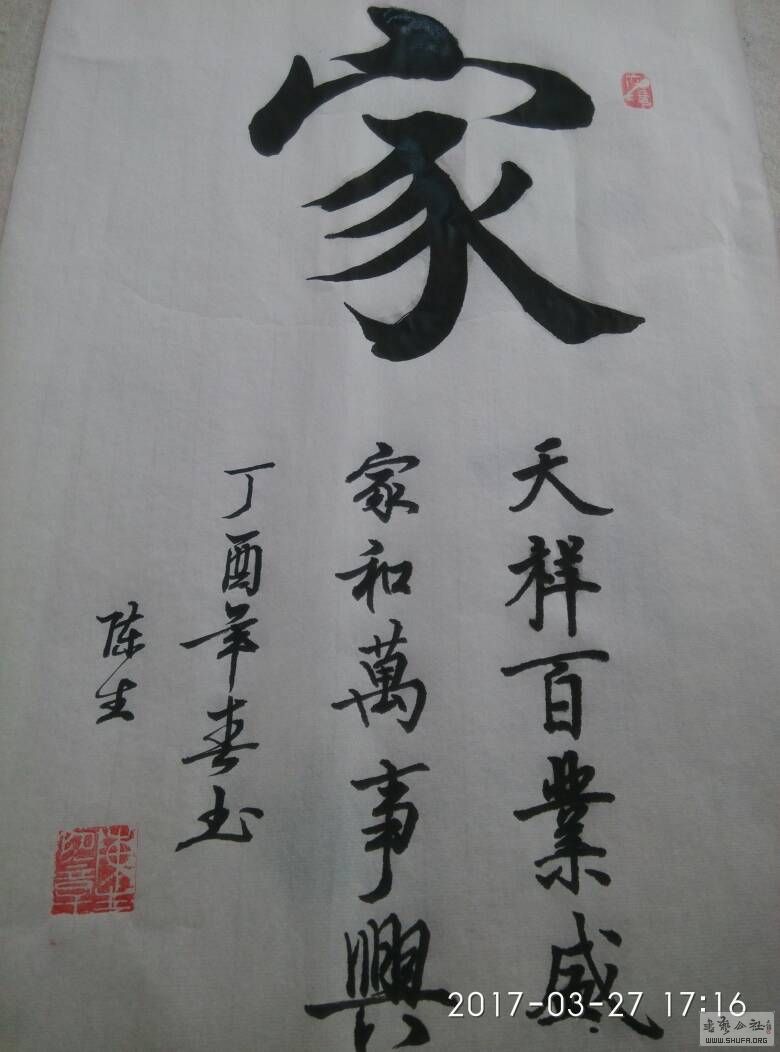 家
天祥百業盛
家和萬事興
丁酉年春玉
陈生
2017-03-27 17:16
WWW.SHUFA.ORG